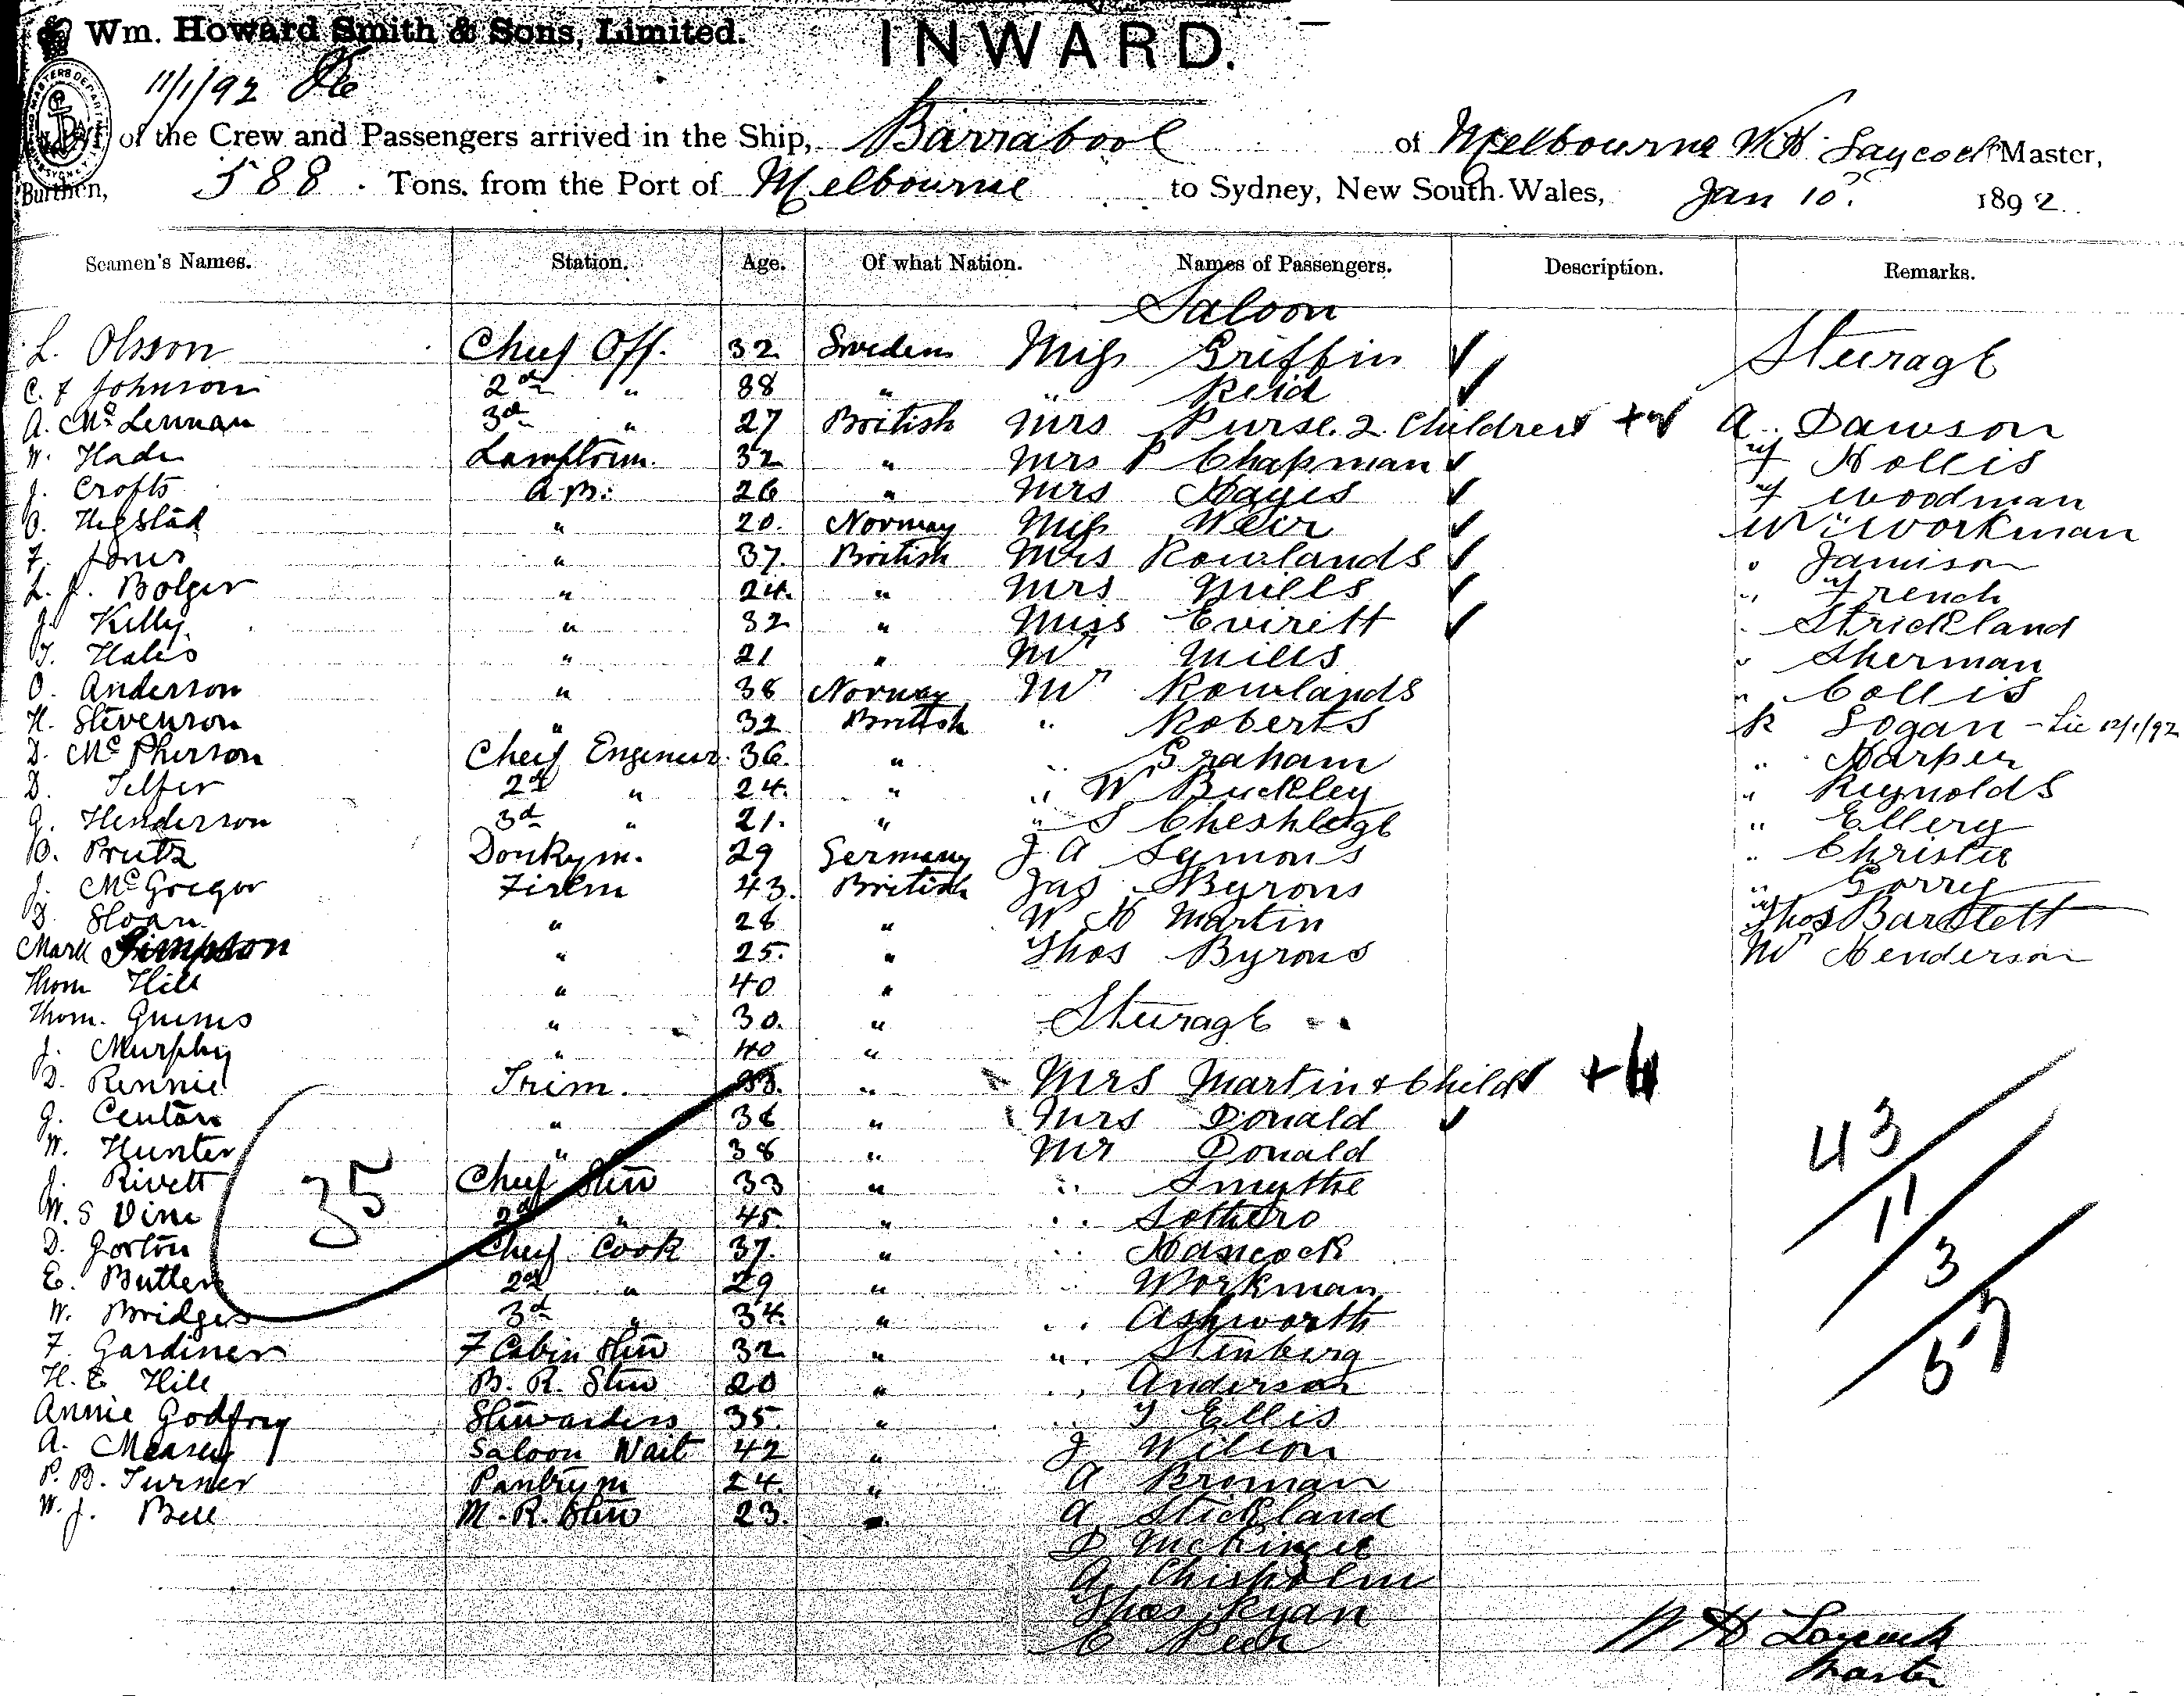 Wm. Howard Smith & Sons, Limited.
INWARD.
11/1/92
of the Crew and Passengers arrived in the Ship, Barrabool of Melbourne W.H. Laycock Master,
Burthen, 588 Tons, from the Port of Melbourne to Sydney, New South Wales, Jan 10 1892
Seamen's Names. Station. Age. Of what Nation. Names of Passengers. Description. Remarks.
Saloon
L. Olsson Chief Off. 32 Sweden Miss Griffin ✓ Steerage
C. F Johnson 2nd " 38 " " Reid ✓
A. McLennan 3rd " 27 British Mrs Purse. 2 Children ✓ A. Dawson
W. Hade Lamptrim. 32 " Mrs P Chapman ✓ " Hollis
J. Crofts A.B. 26 " Mrs Hayes ✓ " Woodman
O. Hegstad " 20. Norway Miss Weir ✓ Mr Workman
F. Jones " 37. British Mrs Rowlands ✓ " Jamison
L. J. Bolger " 24. " Mrs Mills ✓ " French
J. Kelly. " 32 " Miss Everett ✓ " Strickland
T. Hales " 21 " Mr Mills " Sherman
O. Anderson " 38 Norway Mr Rowlands " Collis
H. Stevenson " 32 British " Roberts R Logan - 12/1/92
D. McPherson Cheif Engineer 36. " " Graham " Harper
D. Telfer 2nd " 24. " " W Buckley " Reynolds
G. Henderson 3rd " 21. " " S " Ellery
O. Prutz Donkym. 29 Germany J. A Symons " Christie
J. McGregor Firem 43. British Jas Byrons " Gorry
D. Sloan. " 28 " W H Martin Thos Bartlett
Mark Simpson " 25. " Thos Byrons Mr Henderson
Thom Hill " 40 "
Thom. Guines " 30. " Steerage
J. Murphy " 40 "
D. Rennie Trim. 33. " Mrs Martin & Child ✓
J. Centan " 36 " Mrs Donald ✓ 43
W. Hunter " 38 " Mr Donald
J. Rivett 35 Chief Stew 33 " " Smythe 11
W. S Vine 2nd " 45. " " Sothero
D. Gorton Cheif Cook 37. " " Hancock 3
E. Butler 2nd " 29 " " Workman
W. Bridges 3rd " 34. " " Ashworth 57
F. Gardiner F Cabin Stew 32 " " Stenberg
H. E Hill B. R. Stew 20 " " Anderson
Annie Godfrey Stewardess 35. " " T Ellis
A. Measey Saloon Wait 42 " J Wilson
P. B. Turner Pantrym 24. " A Broman
W. J. Bell M. R. Stew 23. " A Stickland
D McKinie
A. Chisholm
Thos Ryan
W H Laycock
Master